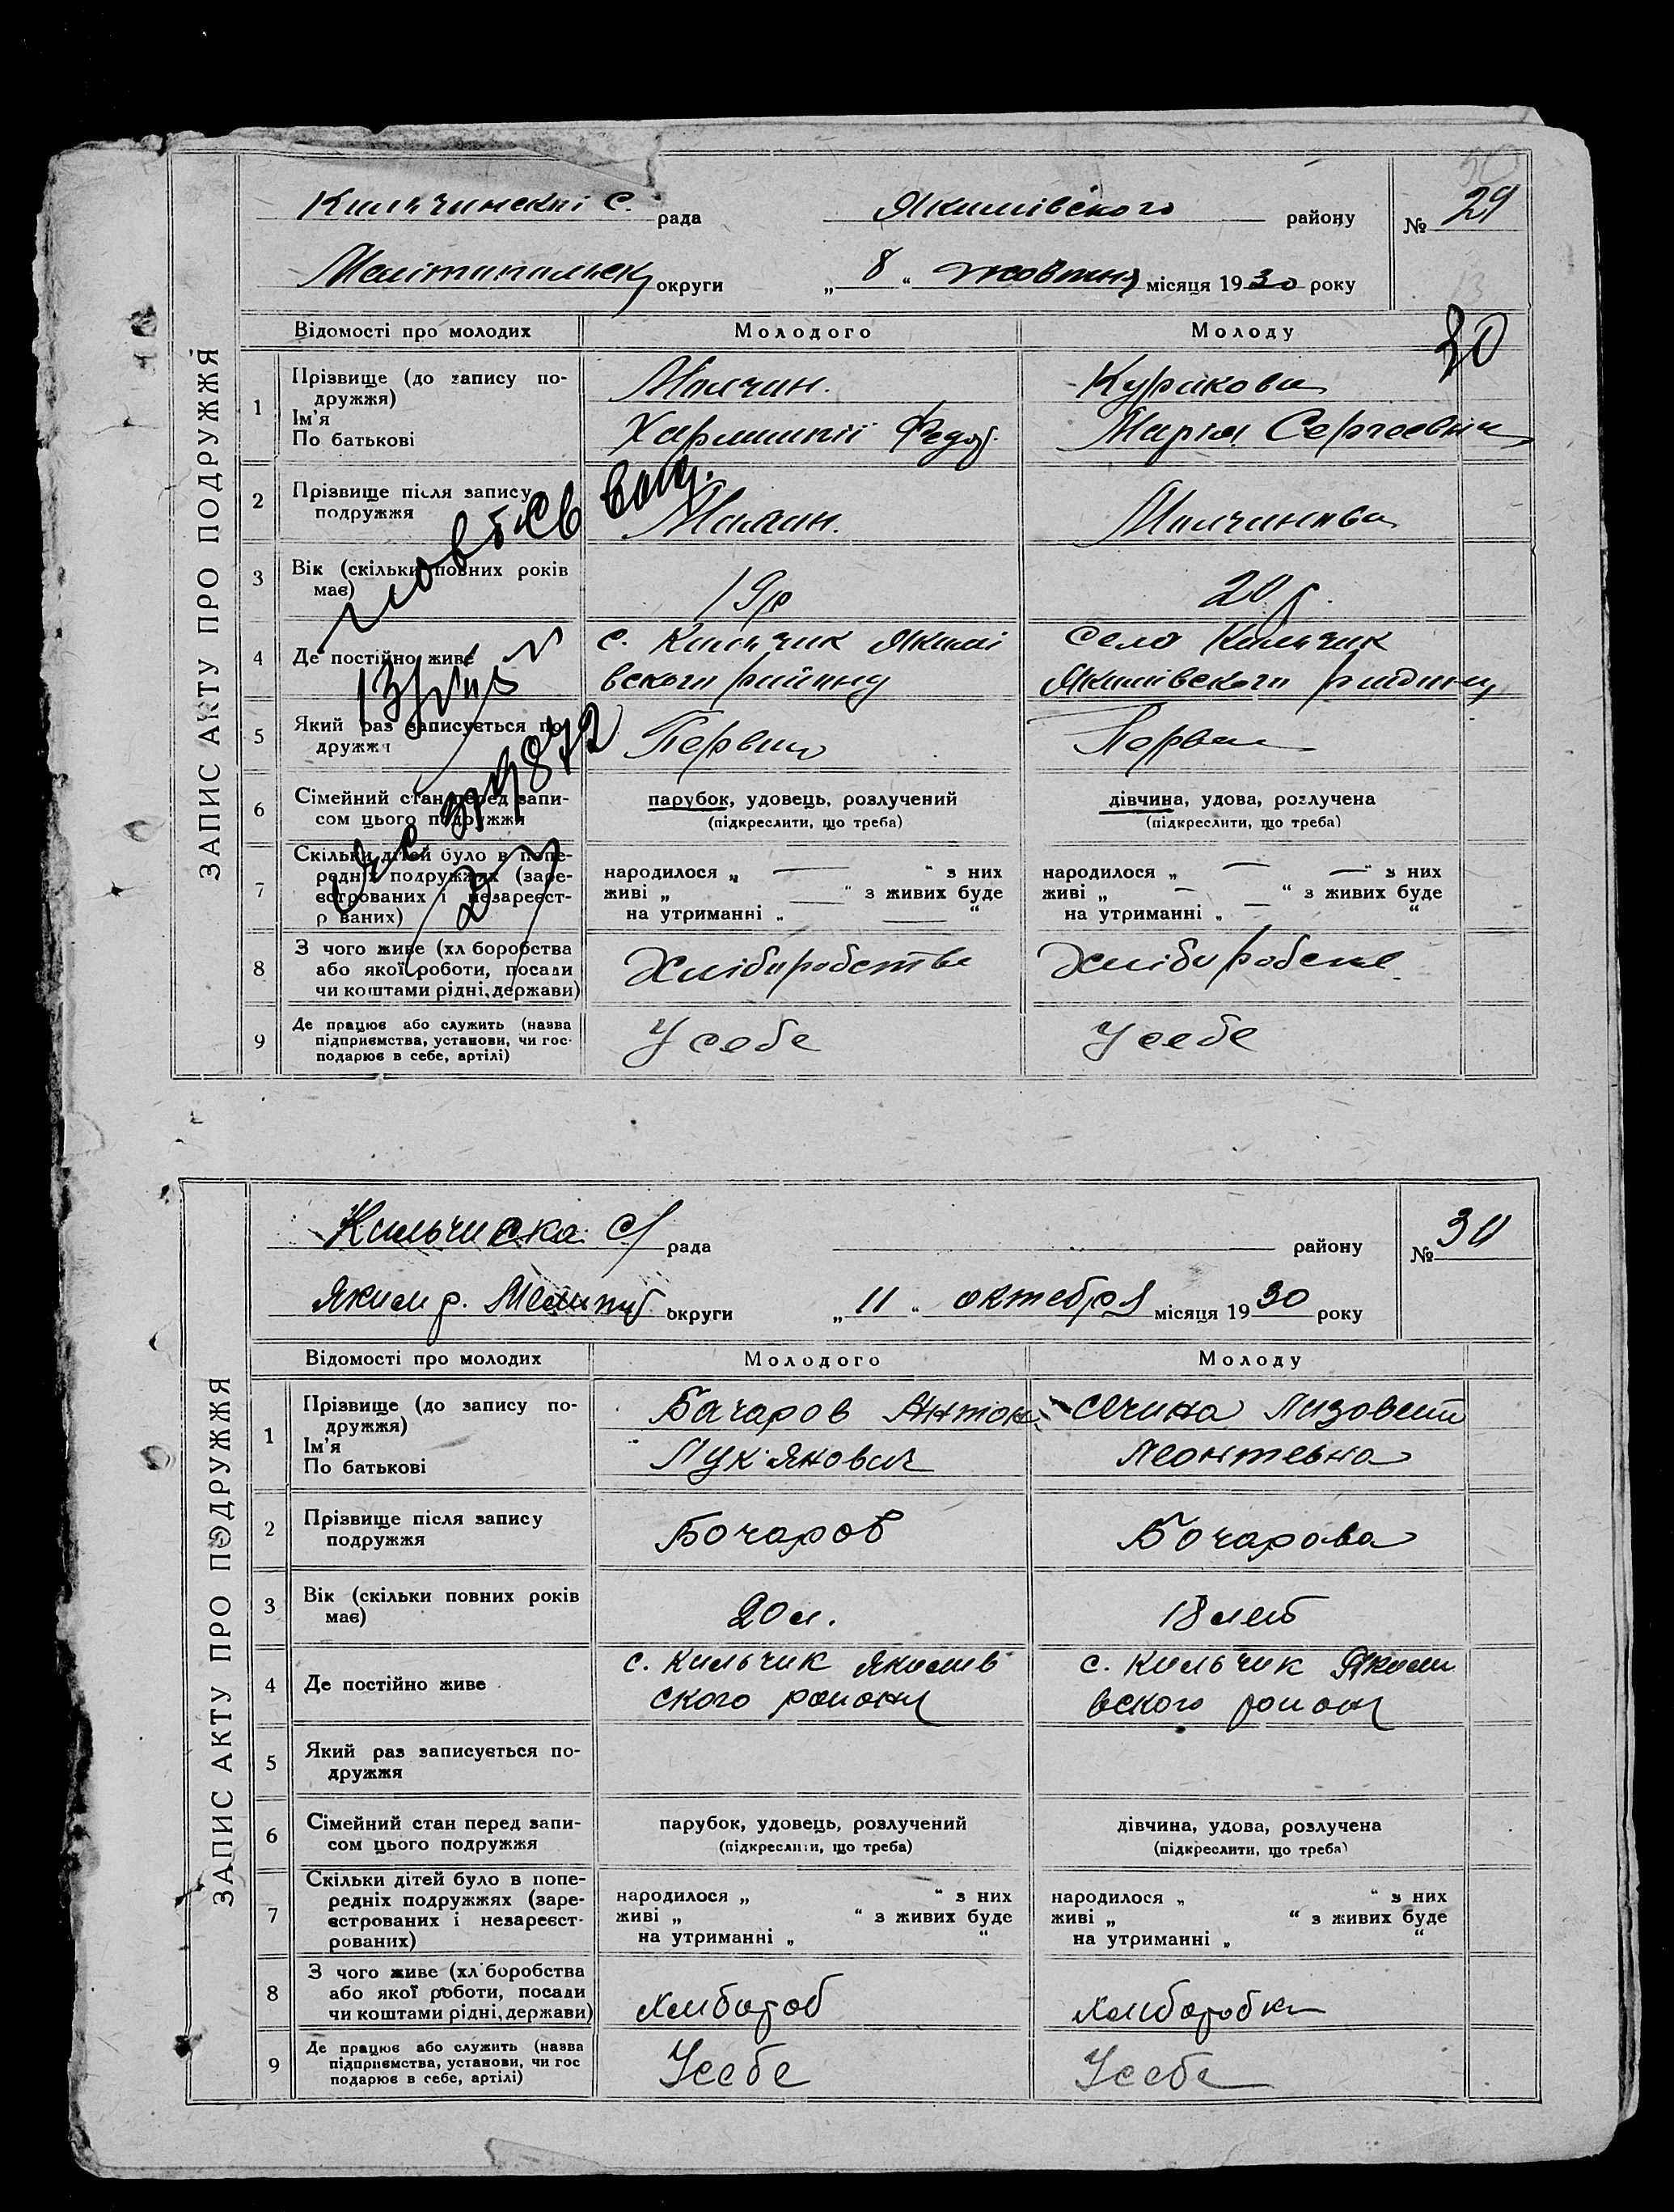 ЗАПИС АКТУ ПРО ПОДРУЖЖЯ
Кильчинскиі с. рада Якимівского району № 29
Мелітопольск округи „ 8 “ жовтня місяця 1930 року
30
Відомості про молодих Молодого Молоду
1 Прізвище (до запису подружжя) Молчин. Курикова
Ім'я
По батькові Харлампій Федор. Марія Сергеевна
2 Прізвище після запису
подружжя Молчин. Молчинова
3 Вік (скільки повних років
має) 19р 20 р.
4 Де постійно живе с. Кильчик Якимі Село Кильчик
вского району Якимівского району
5 Який раз записується по-
дружжя Первий Перва
6 Сімейний стан перед запи- парубок, удовець, розлучений дівчина, удова, розлучена
сом цього подружжя (підкреслити, що треба) (підкреслити, що треба)
7 Скільки дітей було в попе-
редніх подружжях (заре- народилося „ — “ з них народилося „ — “ з них
єстрованих і незареєст- живі „ — “ з живих буде живі „ — “ з живих буде
р ваних) на утриманні „ — “ на утриманні „ — “
8 З чого живе (хл боробства
або якої роботи, посади Хліборобство Хліборобство
чи коштами рідні, держави)
9 Де працює або служить (назва
підприємства, установи, чи гос- У себе У себе
подарює в себе, артілі)
ЗАПИС АКТУ ПРО ПОДРУЖЖЯ
Кильчиска с/ рада району № 30
Яким р. Мелитоп округи „ 11 “ октебря місяця 1930 року
Відомості про молодих Молодого Молоду
1 Прізвище (до запису по- Бачаров Антон Сечина Лизовета
дружжя)
Ім'я Лук'янович Леонтевна
По батькові
2 Прізвище після запису
подружжя Бочаров Бочарова
3 Вік (скільки повних років
має) 20 л. 18 лет
4 Де постійно живе с. Кильчик Якимив с. Кильчик Якими
ского району вского району
5 Який раз записується по-
дружжя
6 Сімейний стан перед запи- парубок, удовець, розлучений дівчина, удова, розлучена
сом цього подружжя (підкреслити, що треба) (підкреслити, що треба)
7 Скільки дітей було в попе-
редніх подружжях (заре- народилося „ “ з них народилося „ “ з них
єстрованих і незареєст- живі „ “ з живих буде живі „ “ з живих буде
рованих) на утриманні „ “ на утриманні „ “
8 З чого живе (хл боробства
або якої роботи, посади хлибороб хлиборобка
чи коштами рідні, держави)
9 Де працює або служить (назва
підприємства, установи, чи гос У себе У себе
подарює в себе, артілі)